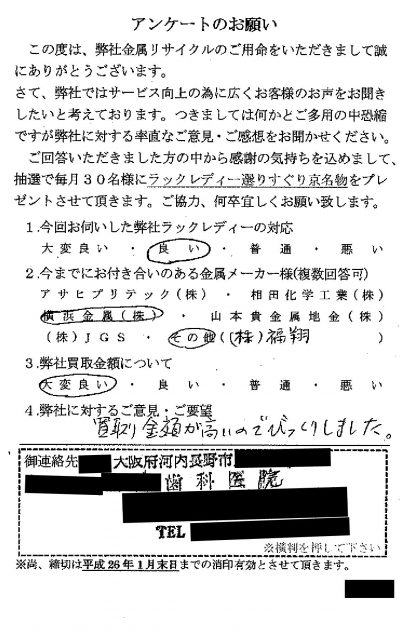 アンケートのお願い
この度は、弊社金属リサイクルのご用命をいただきまして誠
にありがとうございます。
さて、弊社ではサービス向上の為に広くお客様のお声をお聞き
したいと考えております。つきましては何かとご多用の中恐縮
ですが弊社に対する率直なご意見・ご感想をお聞かせください。
ご回答いただきました方の中から感謝の気持ちを込めまして、
抽選で毎月30名様にラックレディー選りすぐり京名物をプレ
ゼントさせて頂きます。ご協力、何卒宜しくお願い致します。
1.今回お伺いした弊社ラックレディーの対応
大変良い ・ 良い ・ 普通 ・ 悪い
2.今までにお付き合いのある金属メーカー様(複数回答可)
アサヒプリテック(株) ・ 相田化学工業(株)
横浜金属(株) ・ 山本貴金属地金(株)
(株)JGS ・ その他((株)福翔 )
3.弊社買取金額について
大変良い ・ 良い ・ 普通 ・ 悪い
4.弊社に対するご意見・ご要望
買取り金額が高いのでびっくりしました。
御連絡先 大阪府河内長野市
歯科医院
TEL
※横判を押して下さい
※尚、締切は平成26年1月末日までの消印有効とさせて頂きます。